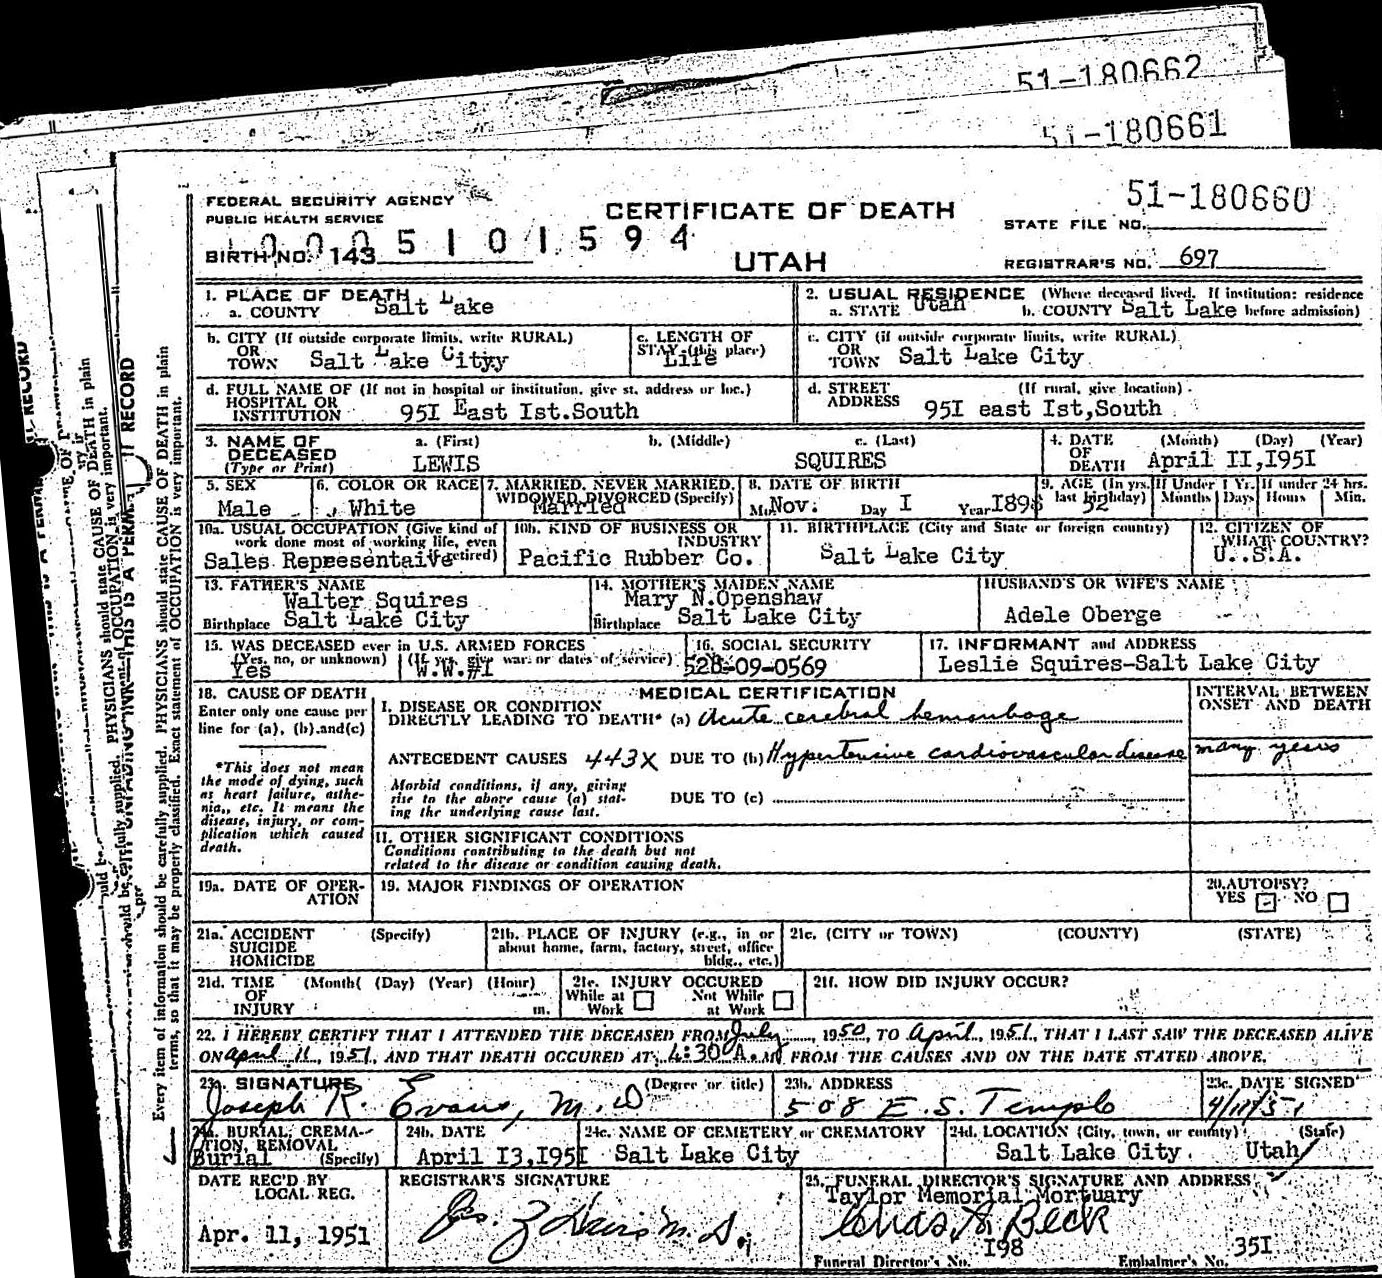 51-180662
51-180661
51-180660
FEDERAL SECURITY AGENCY
PUBLIC HEALTH SERVICE
CERTIFICATE OF DEATH
STATE FILE NO.
BIRTH NO. 143
10005101594
UTAH
REGISTRAR'S NO. 697
1. PLACE OF DEATH
a. COUNTY Salt Lake
2. USUAL RESIDENCE (Where deceased lived. If institution: residence
a. STATE Utah b. COUNTY Salt Lake before admission)
b. CITY (If outside corporate limits, write RURAL)
OR
TOWN Salt Lake Cityy
c. LENGTH OF
STAY (this place)
Life
c. CITY (if outside corporate limits, write RURAL)
OR
TOWN Salt Lake City
d. FULL NAME OF (If not in hospital or institution, give st. address or loc.)
HOSPITAL OR
INSTITUTION 95I East Ist.South
d. STREET (If rural, give location)
ADDRESS 95I east Ist,South
3. NAME OF
DECEASED
(Type or Print)
a. (First) b. (Middle) c. (Last)
LEWIS SQUIRES
4. DATE (Month) (Day) (Year)
OF
DEATH April II,I95I
5. SEX
Male
6. COLOR OR RACE
White
7. MARRIED, NEVER MARRIED,
WIDOWED, DIVORCED (Specify)
Married
8. DATE OF BIRTH
Mo. Nov. Day I Year I898
9. AGE (In yrs. last birthday) If Under 1 Yr. If under 24 hrs.
52 Months Days Hours Min.
10a. USUAL OCCUPATION (Give kind of
work done most of working life, even
Sales Representaive retired)
10b. KIND OF BUSINESS OR
INDUSTRY
Pacific Rubber Co.
11. BIRTHPLACE (City and State or foreign country)
Salt Lake City
12. CITIZEN OF
WHAT COUNTRY?
U.S.A.
13. FATHER'S NAME
Walter Squires
Birthplace Salt Lake City
14. MOTHER'S MAIDEN NAME
Mary N.Openshaw
Birthplace Salt Lake City
HUSBAND'S OR WIFE'S NAME
Adele Oberge
15. WAS DECEASED ever in U.S. ARMED FORCES
(Yes, no, or unknown) (If yes, give war or dates of service)
Yes W.W.#I
16. SOCIAL SECURITY
528-09-0569
17. INFORMANT and ADDRESS
Leslie Squires-Salt Lake City
18. CAUSE OF DEATH
Enter only one cause per
line for (a), (b) and(c)
*This does not mean
the mode of dying, such
as heart failure, asthe-
nia,, etc. It means the
disease, injury, or com-
plication which caused
death.
MEDICAL CERTIFICATION
INTERVAL BETWEEN
ONSET AND DEATH
I. DISEASE OR CONDITION
DIRECTLY LEADING TO DEATH* (a) Acute cerebral hemorrhage
ANTECEDENT CAUSES 443X DUE TO (b) Hypertensive cardiovascular disease many years
Morbid conditions, if any, giving
rise to the above cause (a) stat-
ing the underlying cause last.
DUE TO (c)
II. OTHER SIGNIFICANT CONDITIONS
Conditions contributing to the death but not
related to the disease or condition causing death.
19a. DATE OF OPER-
ATION
19. MAJOR FINDINGS OF OPERATION
20. AUTOPSY?
YES NO
21a. ACCIDENT (Specify)
SUICIDE
HOMICIDE
21b. PLACE OF INJURY (e.g., in or
about home, farm, factory, street, office
bldg., etc.)
21c. (CITY or TOWN) (COUNTY) (STATE)
21d. TIME (Month( (Day) (Year) (Hour)
OF
INJURY m.
21e. INJURY OCCURED
While at Work Not While at Work
21f. HOW DID INJURY OCCUR?
22. I HEREBY CERTIFY THAT I ATTENDED THE DECEASED FROM July, 1950, TO April, 1951, THAT I LAST SAW THE DECEASED ALIVE
ON April 11, 1951, AND THAT DEATH OCCURED AT 4:30 A.M FROM THE CAUSES AND ON THE DATE STATED ABOVE.
23a. SIGNATURE (Degree or title)
Joseph R. Evans, M.D
23b. ADDRESS
508 E. S. Temple
23c. DATE SIGNED
4/11/51
24a. BURIAL, CREMA-
TION, REMOVAL
Burial (Specify)
24b. DATE
April I3,I95I
24c. NAME OF CEMETERY or CREMATORY
Salt Lake City
24d. LOCATION (City, town, or county) (State)
Salt Lake City. Utah
DATE REC'D BY
LOCAL REG.
Apr. 11, 1951
REGISTRAR'S SIGNATURE
25. FUNERAL DIRECTOR'S SIGNATURE AND ADDRESS
Taylor Memorial Mortuary
Chas. A. Beck
Funeral Director's No. I98 Embalmer's No. 35I
Every item of information should be carefully supplied. PHYSICIANS should state CAUSE OF DEATH in plain
terms, so that it may be properly classified. Exact statement of OCCUPATION is very important.